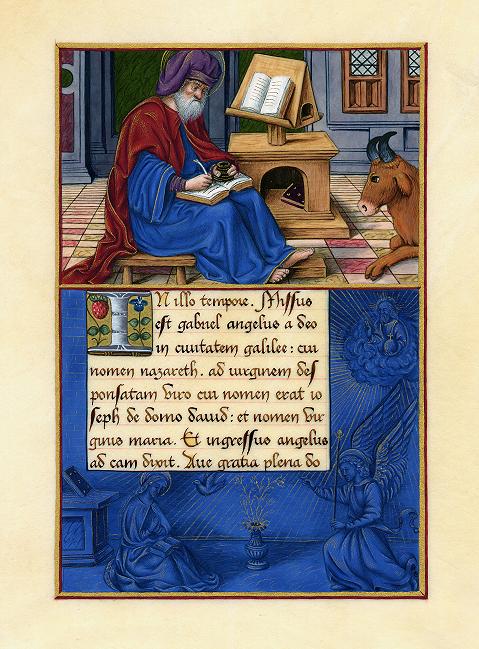 IN illo tempore. Missus
est gabriel angelus a deo
in ciuitatem galilee: cui
nomen nazareth. ad uirginem des
ponsatam viro cui nomen erat io
seph de domo dauid: et nomen vir
ginis maria. Et ingressus angelus
ad eam dixit. Aue gratia plena do